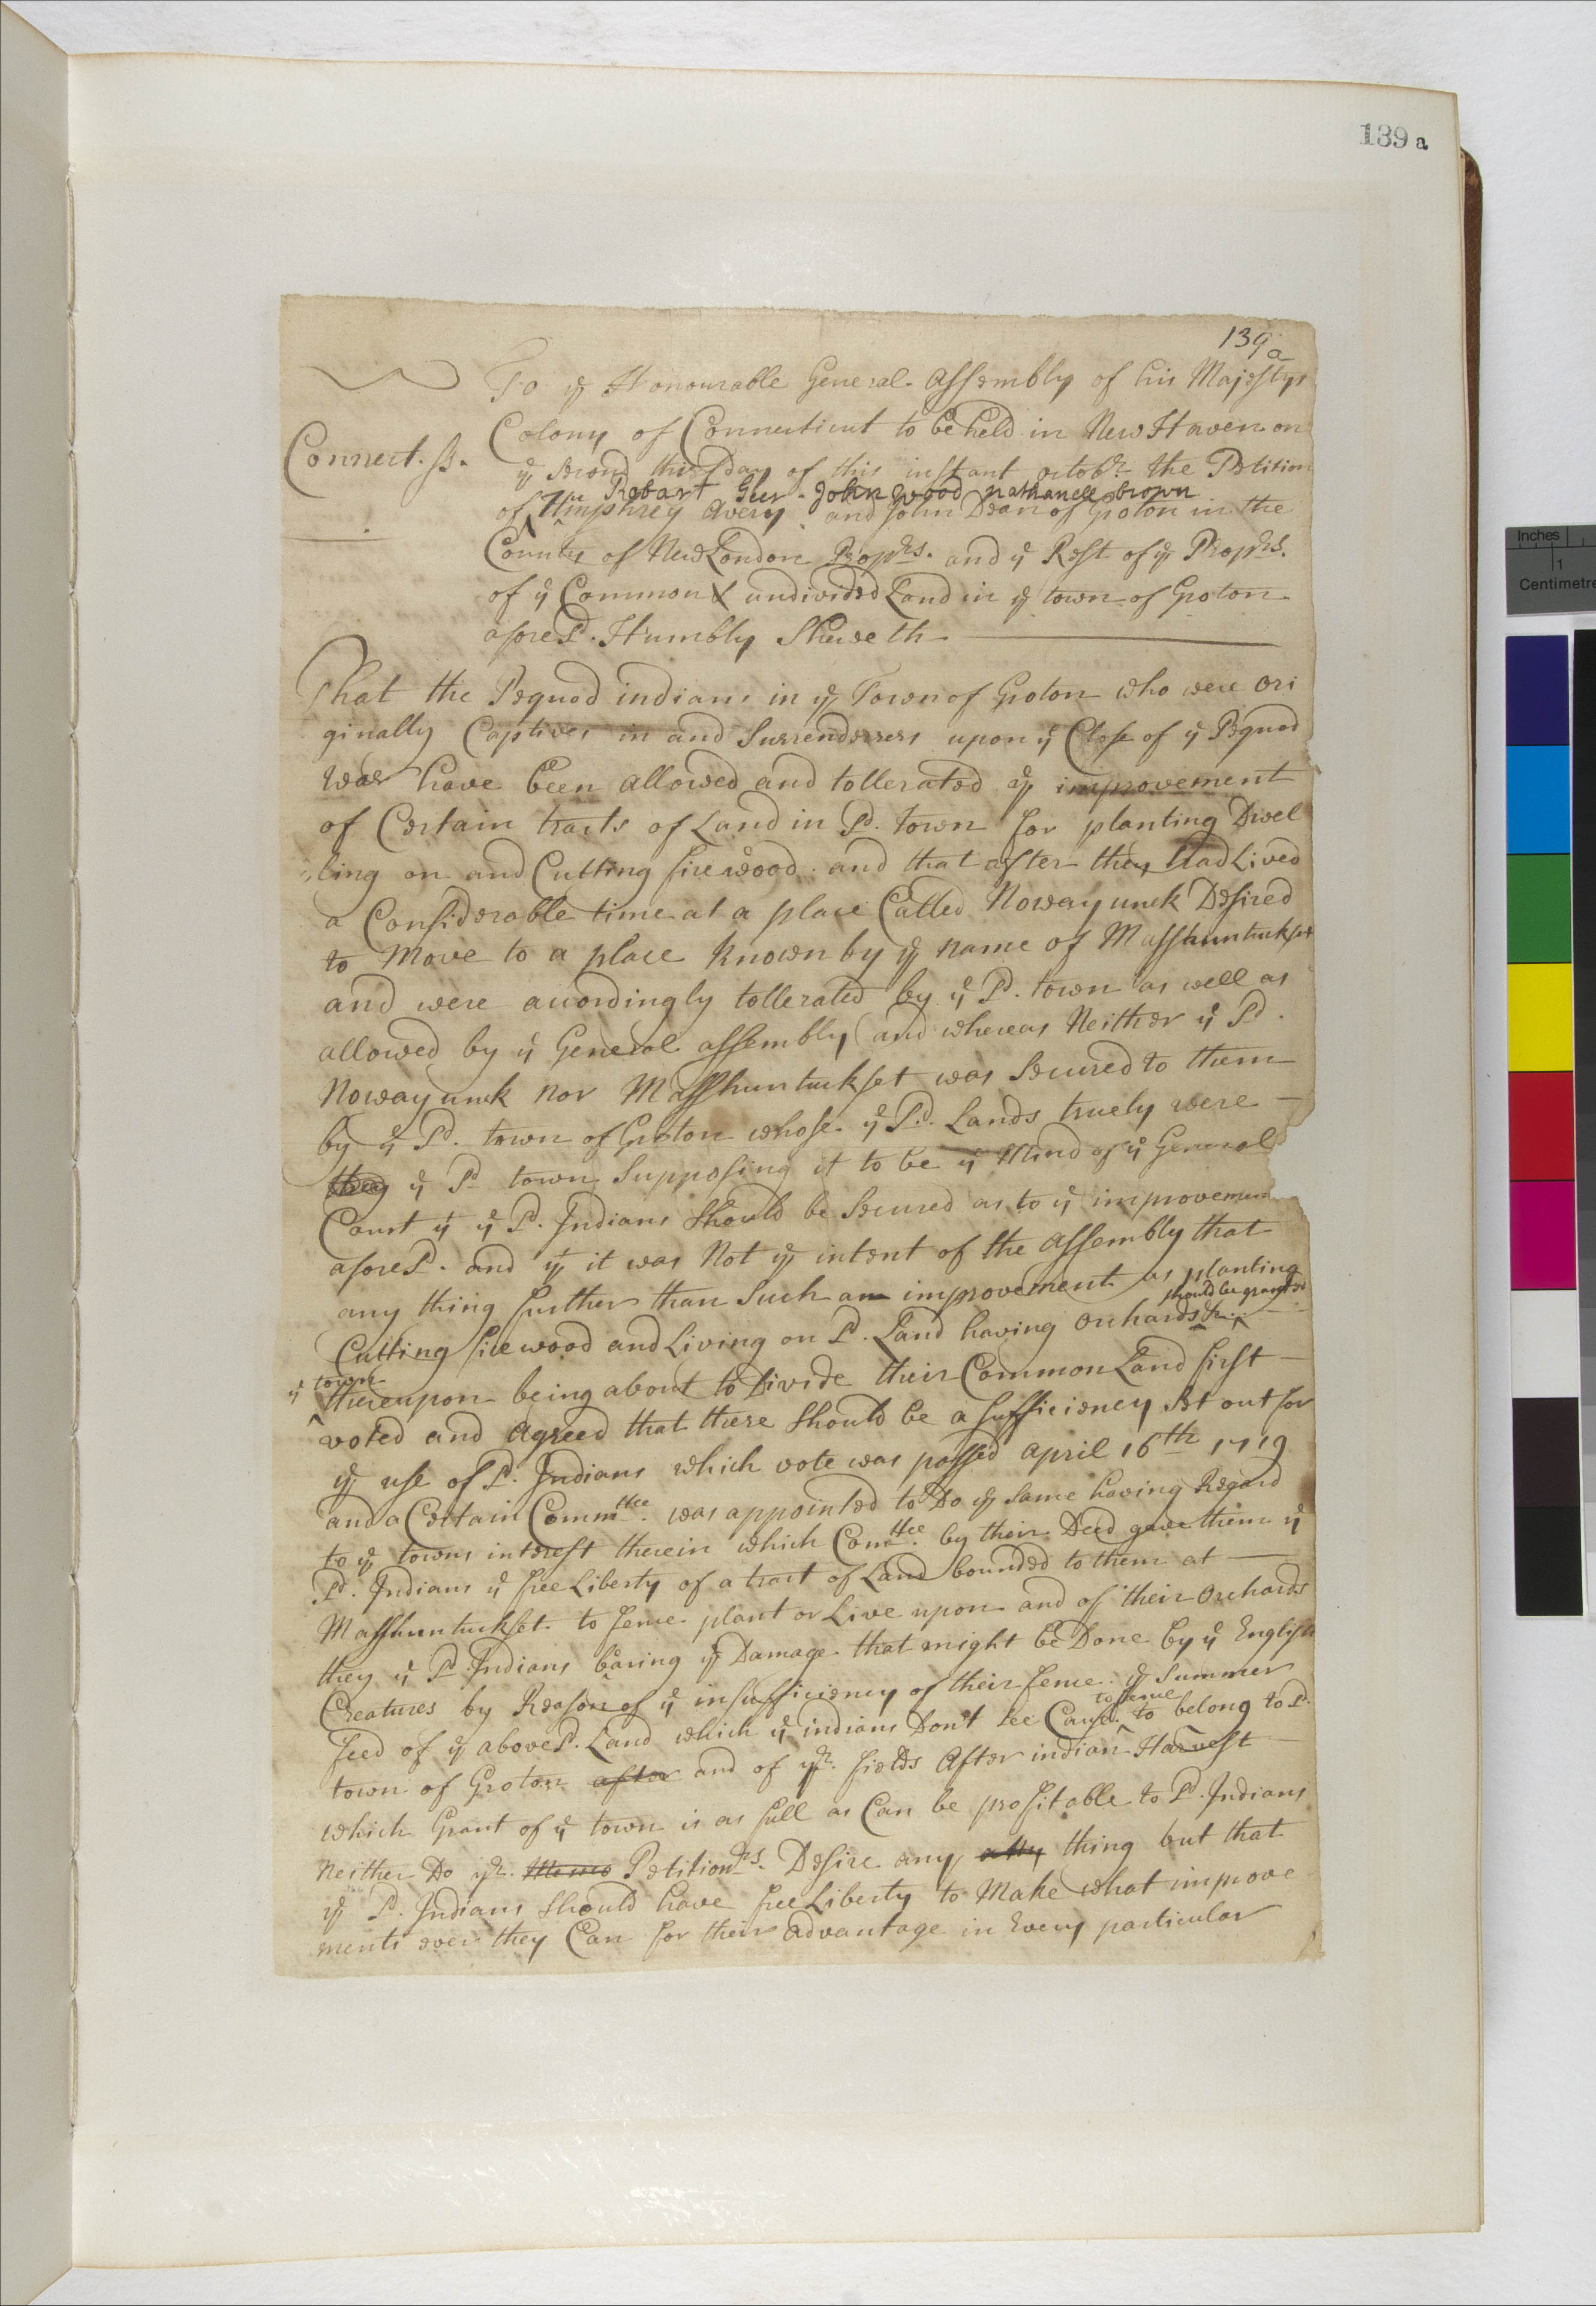 139 a
139a
To yᵉ Honourable General Assembly of his Majestys
Colony of Connecticut to be held in New Haven on
Connect. ss.
yᵉ second thirsday of this instant octobʳ the Petition
Robart Geer John Wood nathanell brown
of Umphrey Avery and John Dean of Groton in the
County of New London Propʳˢ. and yᵉ Rest of yᵉ Propʳˢ.
of yᵉ Common & undivided Land in yᵉ town of Groton
aforesᵈ. Humbly Sheweth
That the Pequod indians in yᵉ Town of Groton who were ori
ginally Captives in and Surrenderers upon yᵉ Close of yᵉ Pequod
War have been allowed and tollerated yᵉ improvement
of Certain tracts of Land in Sᵈ. town for planting Dwel
ling on and Cutting fire wood. and that after they had Lived
a Considerable time at a place Called Nowayunck Desired
to Move to a place Known by yᵉ name of Masshuntuckset
and were accordingly tollerated by yᵉ Sᵈ. town as well as
allowed by yᵉ General assembly and whereas Neither yᵉ Sᵈ.
Nowayunck nor Masshuntuckset was Secured to them
by yᵉ Sᵈ. town of Groton whose yᵉ Sᵈ. Lands truely were
they yᵉ Sᵈ town Supposing it to be yᵉ Mind of yᵉ General
Court yᵗ yᵉ Sᵈ. Indians Should be Secured as to yᵉ improvemen
aforesᵈ. and yᵗ it was Not yᵉ intent of the assembly that
any thing further than Such an improvement as planting
should be granted
Cutting fire wood and Living on Sᵈ. Land having orchards &c.
yᵉ town
thereupon being about to Divide their Common Land first
voted and Agreed that there Should be a sufficiency Set out for
yᵉ use of Sᵈ. Indians which vote was passed april 16th 1719
and a Certain Commᵗᵗᵉᵉ. was appointed to Do yᵉ Same having Regard
to yᵉ towns interest therein which Comᵗᵗᵉᵉ. by their Deed gave them yᵉ
Sᵈ. Indians yᵉ free Liberty of a tract of Land bounded to them at
Masshuntuckset to fence plant or Live upon and of their orchards
they yᵉ Sᵈ. Indians baring yᵉ Damage that might be Done by yᵉ English
Creatures by Reason of yᵉ insufficiency of their fence. yᵉ Summer
to fence
feed of yᵉ aboveSᵈ. Land which yᵉ indians Don't see Cause to belong to Sᵈ.
town of Groton after and of yʳ. fields After indian Harvest
which Grant of yᵉ town is as full as Can be profitable to Sᵈ. Indians
Neither Do yʳ. Petitionʳˢ. Desire any thing but that
yᵉ Sᵈ. Indians Should have free Liberty to Make what improve
ments ever they Can for their advantage in Every particular
Inches
1
Centimetre